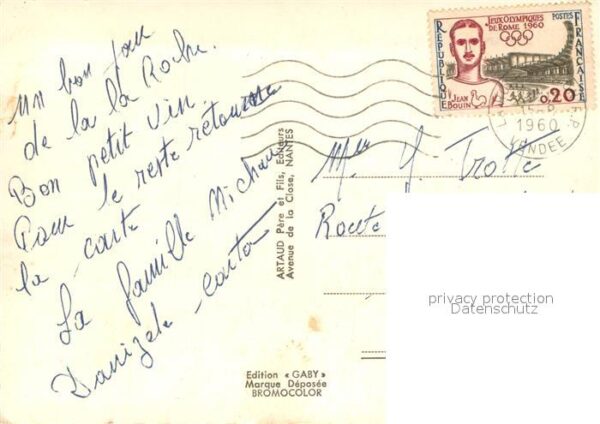 un bon jour
de la la Roche.
Bon petit vin.
Pour le reste retourner
la carte
La famille Michau
Danizele - carton
ARTAUD Père et Fils, Editeurs
Avenue de la Close, NANTES
Edition « GABY »
Marque Déposée
BROMOCOLOR
JEUX OLYMPIQUES
DE ROME 1960
POSTES
RÉPUBLIQUE
FRANÇAISE
JEAN
BOUIN
0,20
1960
VENDEE
Mlle Y. Trotte
Route
privacy protection
Datenschutz